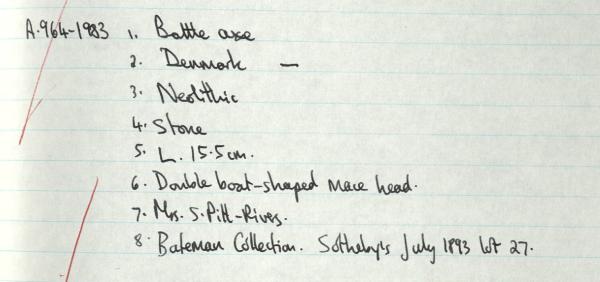 A.964-1983 1. Battle axe
2. Denmark —
3. Neolithic
4. Stone
5. L. 15.5cm.
6. Double boat-shaped mace head.
7. Mrs. S. Pitt-Rivers.
8. Bateman Collection. Sotheby's July 1893 lot 27.